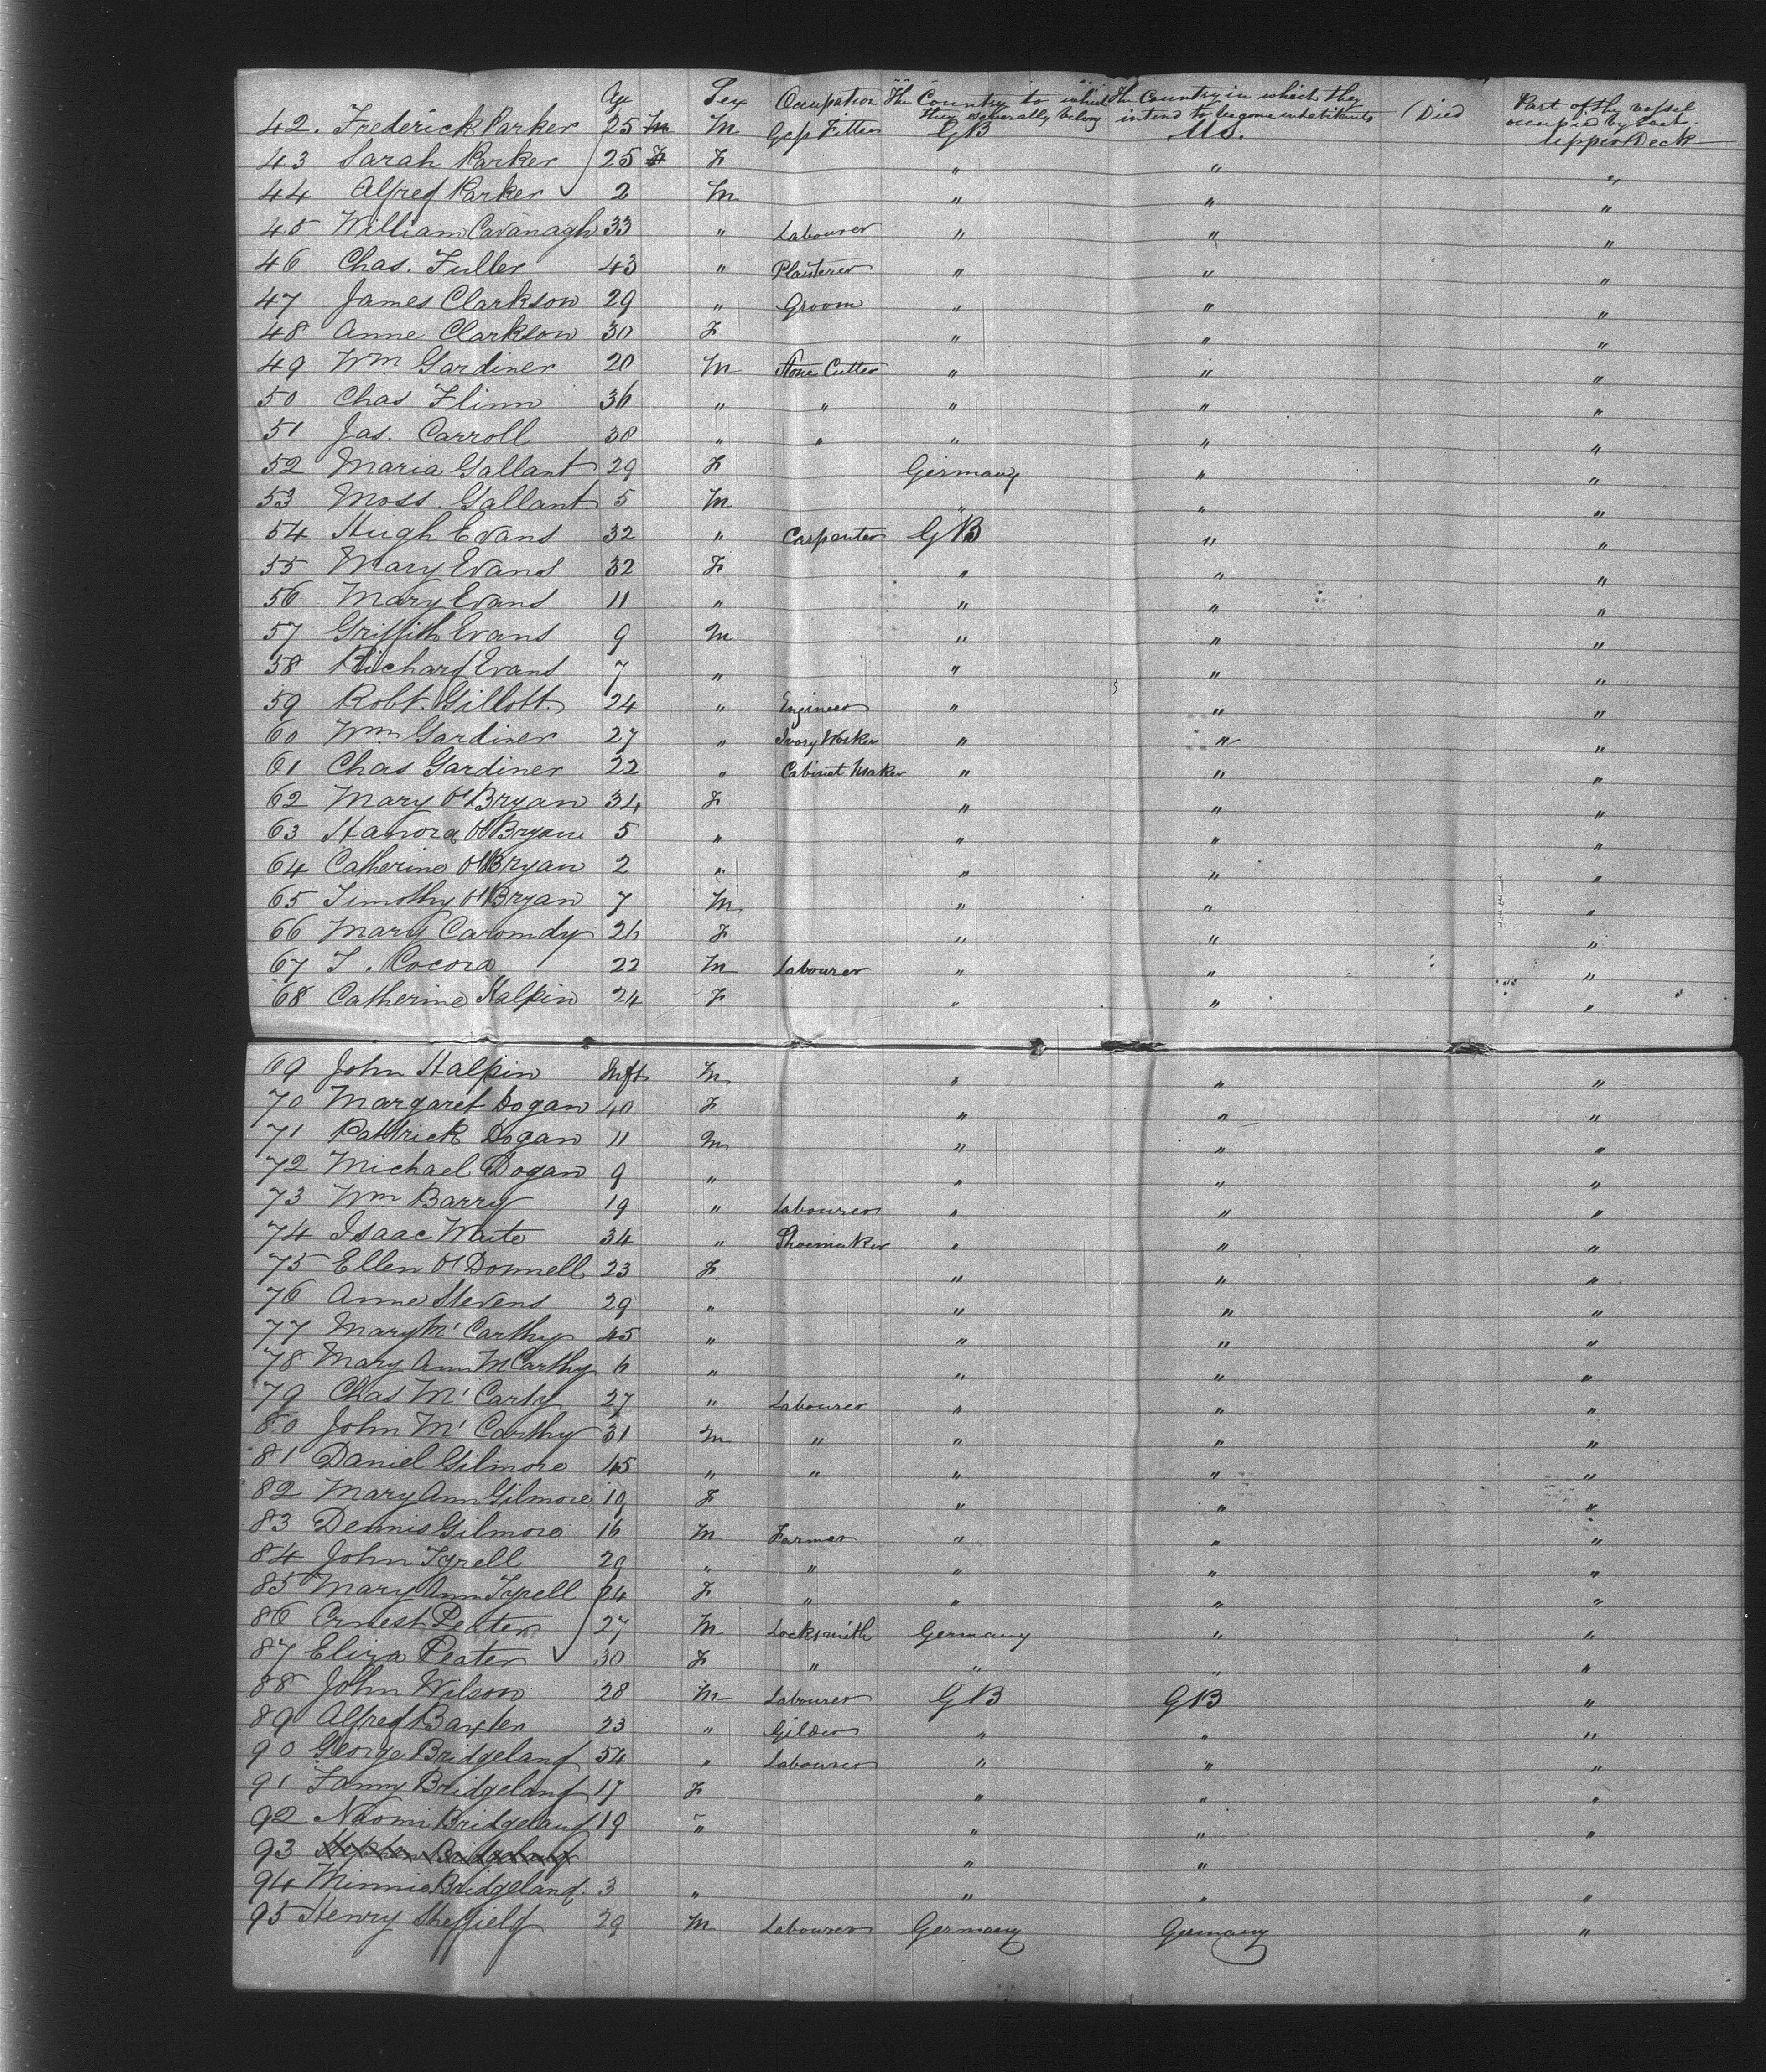 Age Sex Occupation The Country to which they severally belong The Country in which they intend to become inhabitants Died Part of the vessel occupied by each
42. Frederick Parker 25 M M Gass Fitter GB US. Upper Deck
43 Sarah Parker 25 F F " " "
44 Alfred Parker 2 M " " "
45 William Cavanagh 33 " Labourer " " "
46 Chas. Fuller 43 " Plaisterer " " "
47 James Clarkson 29 " Groom " " "
48 Anne Clarkson 30 F " " "
49 Wm Gardiner 20 M Stone Cutter " " "
50 Chas Flinn 36 " " " " "
51 Jas. Carroll 38 " " " " "
52 Maria Gallant 29 F Germany " "
53 Moss. Gallant 5 M " " "
54 Hugh Evans 32 " Carpenter GB " "
55 Mary Evans 32 F " " "
56 Mary Evans 11 " " " "
57 Griffith Evans 9 M " " "
58 Richard Evans 7 " " " "
59 Robt. Gillott 24 " Engineer " " "
60 Wm Gardiner 27 " Ivory Worker " " "
61 Chas Gardiner 22 " Cabinet Maker " " "
62 Mary O'Bryan 34 F " " "
63 Hanora O'Bryan 5 " " " "
64 Catherine O'Bryan 2 " " " "
65 Timothy O'Bryan 7 M " " "
66 Mary Caromdy 26 F " " "
67 T. Cocora 22 M Labourer " " "
68 Catherine Halpin 24 F " " "
69 John Halpin Inft M " " "
70 Margaret Dogan 40 F " " "
71 Pattrick Dogan 11 M " " "
72 Michael Dogan 9 " " " "
73 Wm Barry 19 " Labourer " " "
74 Isaac Waite 34 " Shoemaker " " "
75 Ellen O'Donnell 23 F " " "
76 Anne Stevens 29 " " " "
77 Mary M'Carthy 45 " " " "
78 Mary Ann McCarthy 6 " " " "
79 Chas M'Carty 27 " Labourer " " "
80 John M'Carthy 31 M " " " "
81 Daniel Gilmore 45 " " " " "
82 Mary Ann Gilmore 19 F " " "
83 Dennis Gilmore 16 M Farmer " " "
84 John Tyrell 29 " " " " "
85 Mary Ann Tyrell 24 F " " " "
86 Ernest Peater 27 M Locksmith Germany " "
87 Eliza Peater 30 F " " " "
88 John Wilson 28 M Labourer GB GB "
89 Alfred Baxter 23 " Gilder " " "
90 George Bridgeland 54 " Labourer " " "
91 Fanny Bridgeland 17 F " " "
92 Naomi Bridgeland 19 " " " "
93 Stephen Bridgeland " "
94 Minnie Bridgeland. 3 " " " "
95 Henry Sheffield 29 M Labourer Germany Germany "